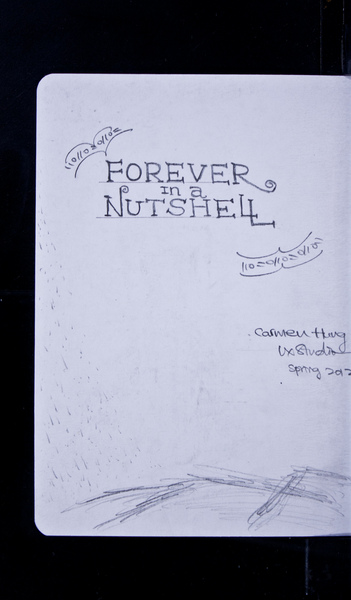 FOREVER
in a
NUTSHELL
Carmen
UX Studio
Spring 2012